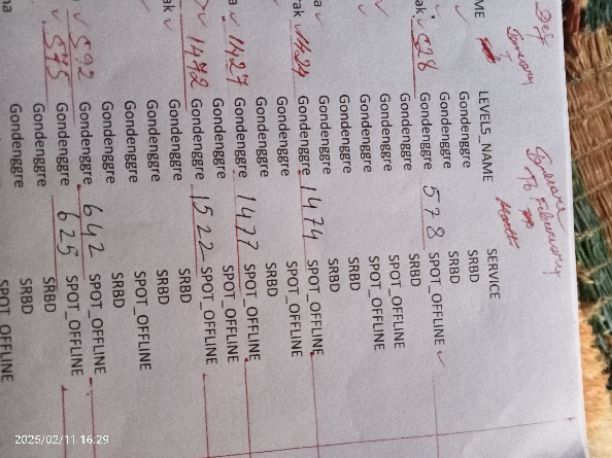 January
January To February
ME LEVELS_NAME Month SERVICE
Gondenggre SRBD
Gondenggre SRBD
528 Gondenggre 578 SPOT_OFFLINE
Gondenggre SRBD
Gondenggre SPOT_OFFLINE
Gondenggre SPOT_OFFLINE
Gondenggre SRBD
a Gondenggre SRBD
rak 1424 Gondenggre 1474 SPOT_OFFLINE
Gondenggre SPOT_OFFLINE
Gondenggre SRBD
a 1427 Gondenggre 1477 SPOT_OFFLINE
Gondenggre SPOT_OFFLINE
1472 Gondenggre 1522 SPOT_OFFLINE
ak Gondenggre SRBD
Gondenggre SRBD
Gondenggre SPOT_OFFLINE
Gondenggre SRBD
592 Gondenggre 642 SPOT_OFFLINE
575 Gondenggre 625 SPOT_OFFLINE
Gondenggre SRBD
na Gondenggre SRBD
SPOT_OFFLINE
2025/02/11 16:29